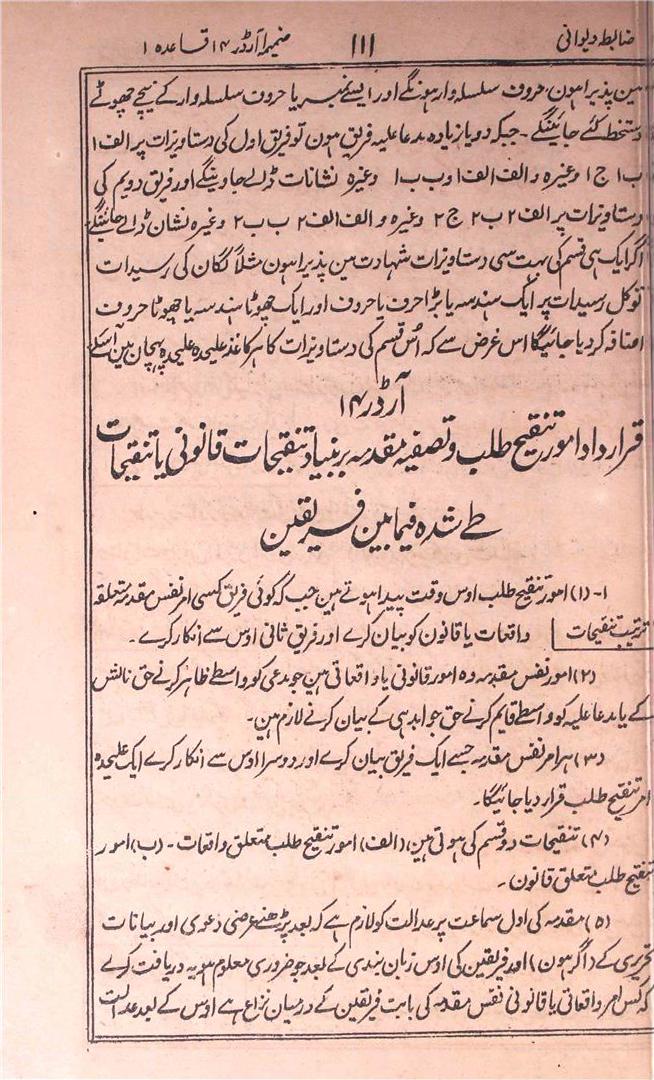 ضابطہ دیوانی ۱۱۱ ضمیمہ آرڈر ۱۴ قاعدہ ۱
مین پذیرا ہون، حروف سلسلہ وار ہونگے اور ایسے نمبر یا حروف سلسلہ وار کے نیچے چھوٹے
دستخط کئے جائینگے۔ جبکہ دو یا زیادہ مدعا علیہ فریق ہون تو فریق اول کی دستاویزات پر الف ۱
ب ۱ ج ۱ وغیرہ و الف الف ۱ و ب ب ۱ وغیرہ نشانات ڈالے جاوینگے اور فریق دویم کی
دستاویزات پر الف ۲ ب ۲ ج ۲ وغیرہ و الف الف ۲ ب ب ۲ وغیرہ نشان ڈالے جائینگے
اگر ایک ہی قسم کی بہت سی دستاویزات شہادت مین پذیرا ہون مثلاً لگان کی رسیدات
تو کل رسیدات پر ایک ہندسہ یا بڑا حرف یا حروف اور ایک چھوٹا ہندسہ یا چھوٹا حروف
اضافہ کر دیا جائیگا اس غرض سے کہ اُس قسم کی دستاویزات کا ہر کاغذ علیحدہ علیحدہ پہچان مین آسکے
آرڈر ۱۴
قرار داد امور تنقیح طلب و تصفیہ مقدمہ بر بنیاد تنقیحات قانونی یا تنقیحات
طے شدہ فیما بین فریقین
۱۔ (۱) امور تنقیح طلب اوس وقت پیدا ہوتے ہین جب کہ کوئی فریق کسی امر نفس مقدمہ متعلقہ
ترتیب تنقیحات واقعات یا قانون کو بیان کرے اور فریق ثانی اوس سے انکار کرے۔
(۲) امور نفس مقدمہ وہ امور قانونی یا واقعاتی ہین جو مدعی کو واسطے ظاہر کرنے حق نالش
کے یا مدعا علیہ کو واسطے قایم کرنے حق جوابدہی کے بیان کرنے لازم ہین۔
(۳) ہر امر نفس مقدمہ جسے ایک فریق بیان کرے اور دوسرا اوس سے انکار کرے ایک علیحدہ
امر تنقیح طلب قرار دیا جائیگا۔
(۴) تنقیحات دو قسم کی ہوتی ہین (الف) امور تنقیح طلب متعلق واقعات۔ (ب) امور
تنقیح طلب متعلق قانون۔
(۵) مقدمہ کی اول سماعت پر عدالت کو لازم ہے کہ بعد پڑھنے عرضی دعوی اور بیانات
تحریری کے (اگر ہون) اور فریقین کی اوس زبان بندی کے بعد جو ضروری معلوم ہو یہ دریافت کرے
کہ کس امر واقعاتی یا قانونی نفس مقدمہ کی بابت فریقین کے درمیان نزاع ہے اوس کے بعد عدالت